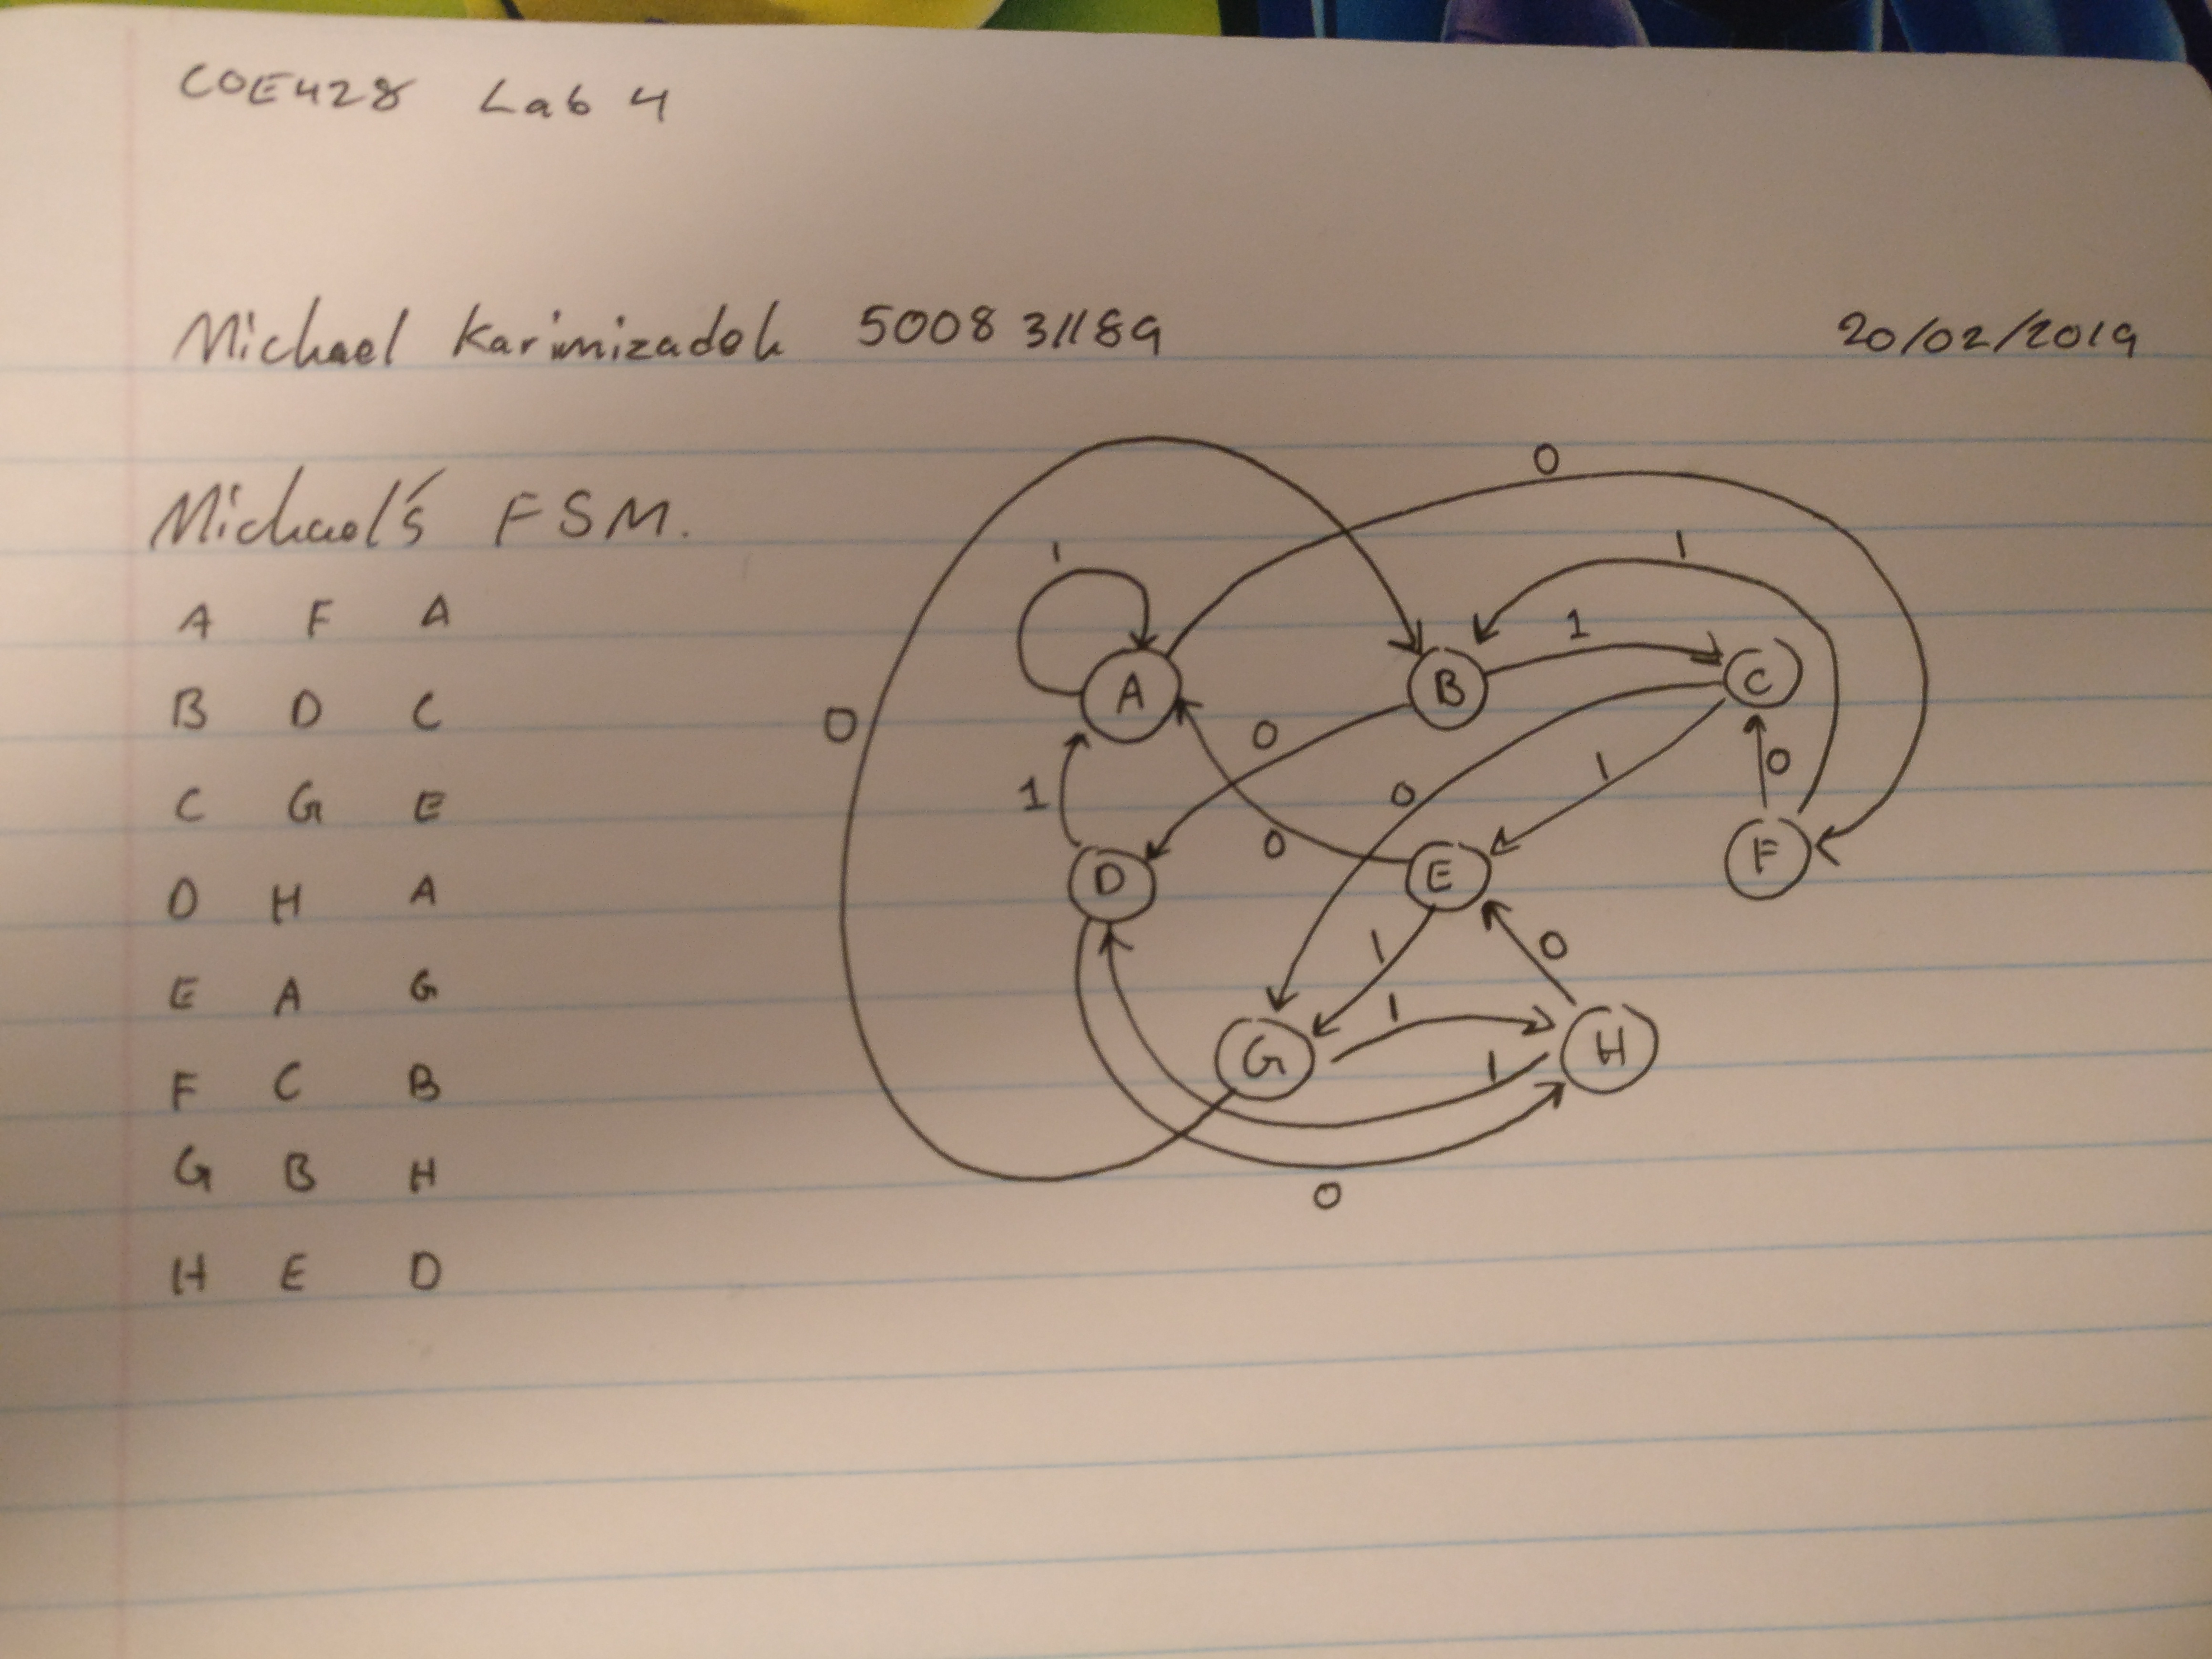 COE428 Lab 4
Michael Karimizadeh 500831189 20/02/2019
Michael's FSM.
A F A
B D C
C G E
D H A
E A G
F C B
G B H
H E D
0
1
1
1
A
B
C
0
0
0
1
0
1
0
D
E
F
1
0
1
G
1
H
0